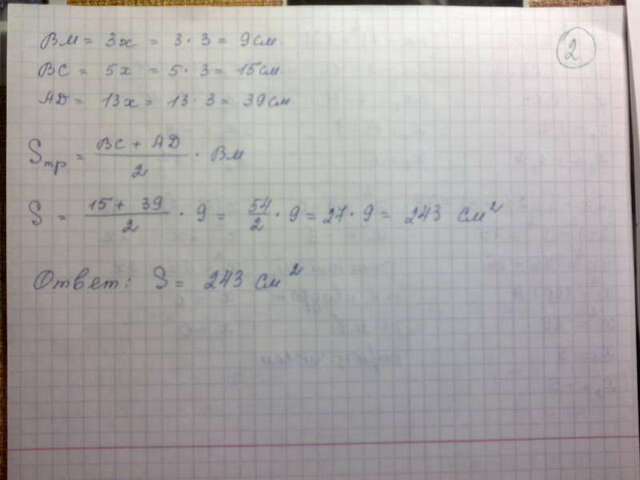 ВМ = 3х = 3 · 3 = 9 см
2
ВС = 5х = 5 · 3 = 15 см
AD = 13х = 13 · 3 = 39 см
Sтр = (ВС + AD)/2 · Вм
S = (15 + 39)/2 · 9 = 54/2 · 9 = 27 · 9 = 243 см²
Ответ: S = 243 см²